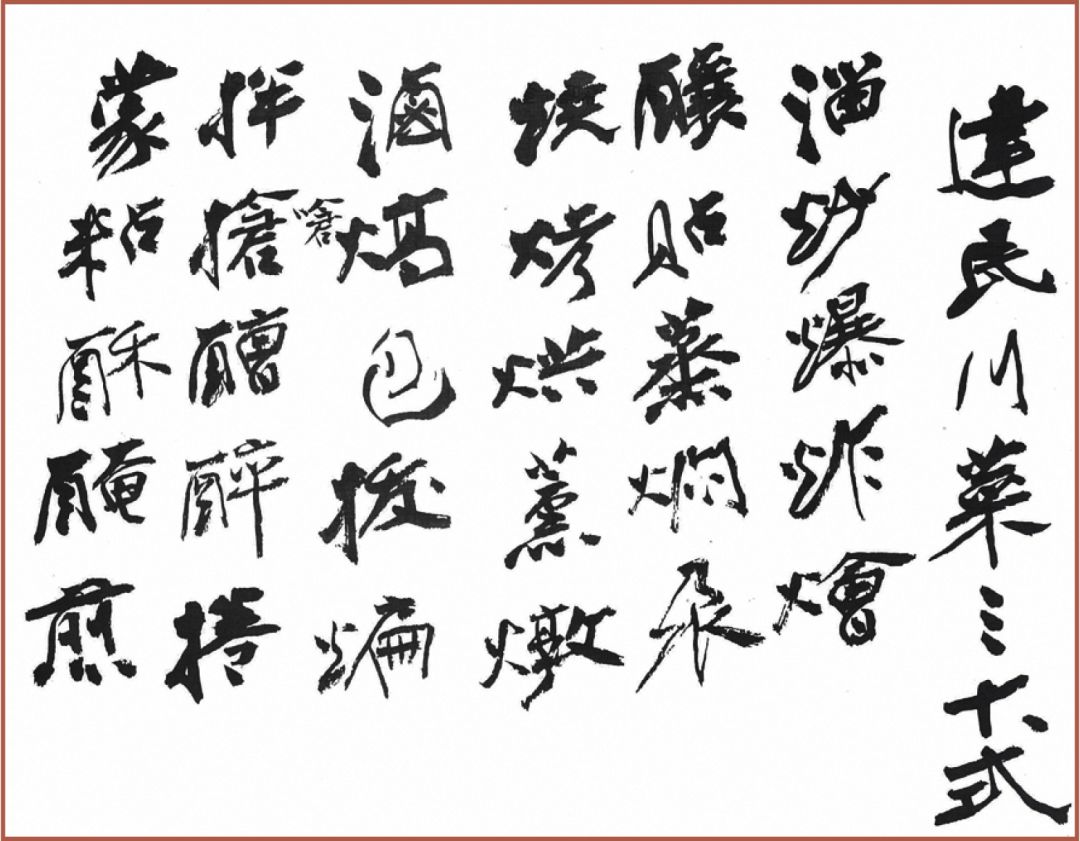 建民川菜三十式
溜炒爆炸燴
釀貼蒸燜汆
燒烤烘薰燉
滷熇包拔煸
拌搶嗆醩醉捲
蒙粘酥醃煎